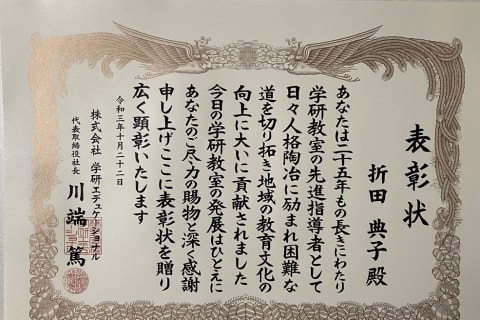 表彰状
折田 典子 殿
あなたは二十五年もの長きにわたり
学研教室の先進指導者として
日々人格陶冶に励まれ困難な
道を切り拓き地域の教育文化の
向上に大いに貢献されました
今日の学研教室の発展はひとえに
あなたのご尽力の賜物と深く感謝
申し上げここに表彰状を贈り
広く顕彰いたします
令和三年十月二十二日
株式会社 学研エデュケーショナル
代表取締役社長 川端 篤